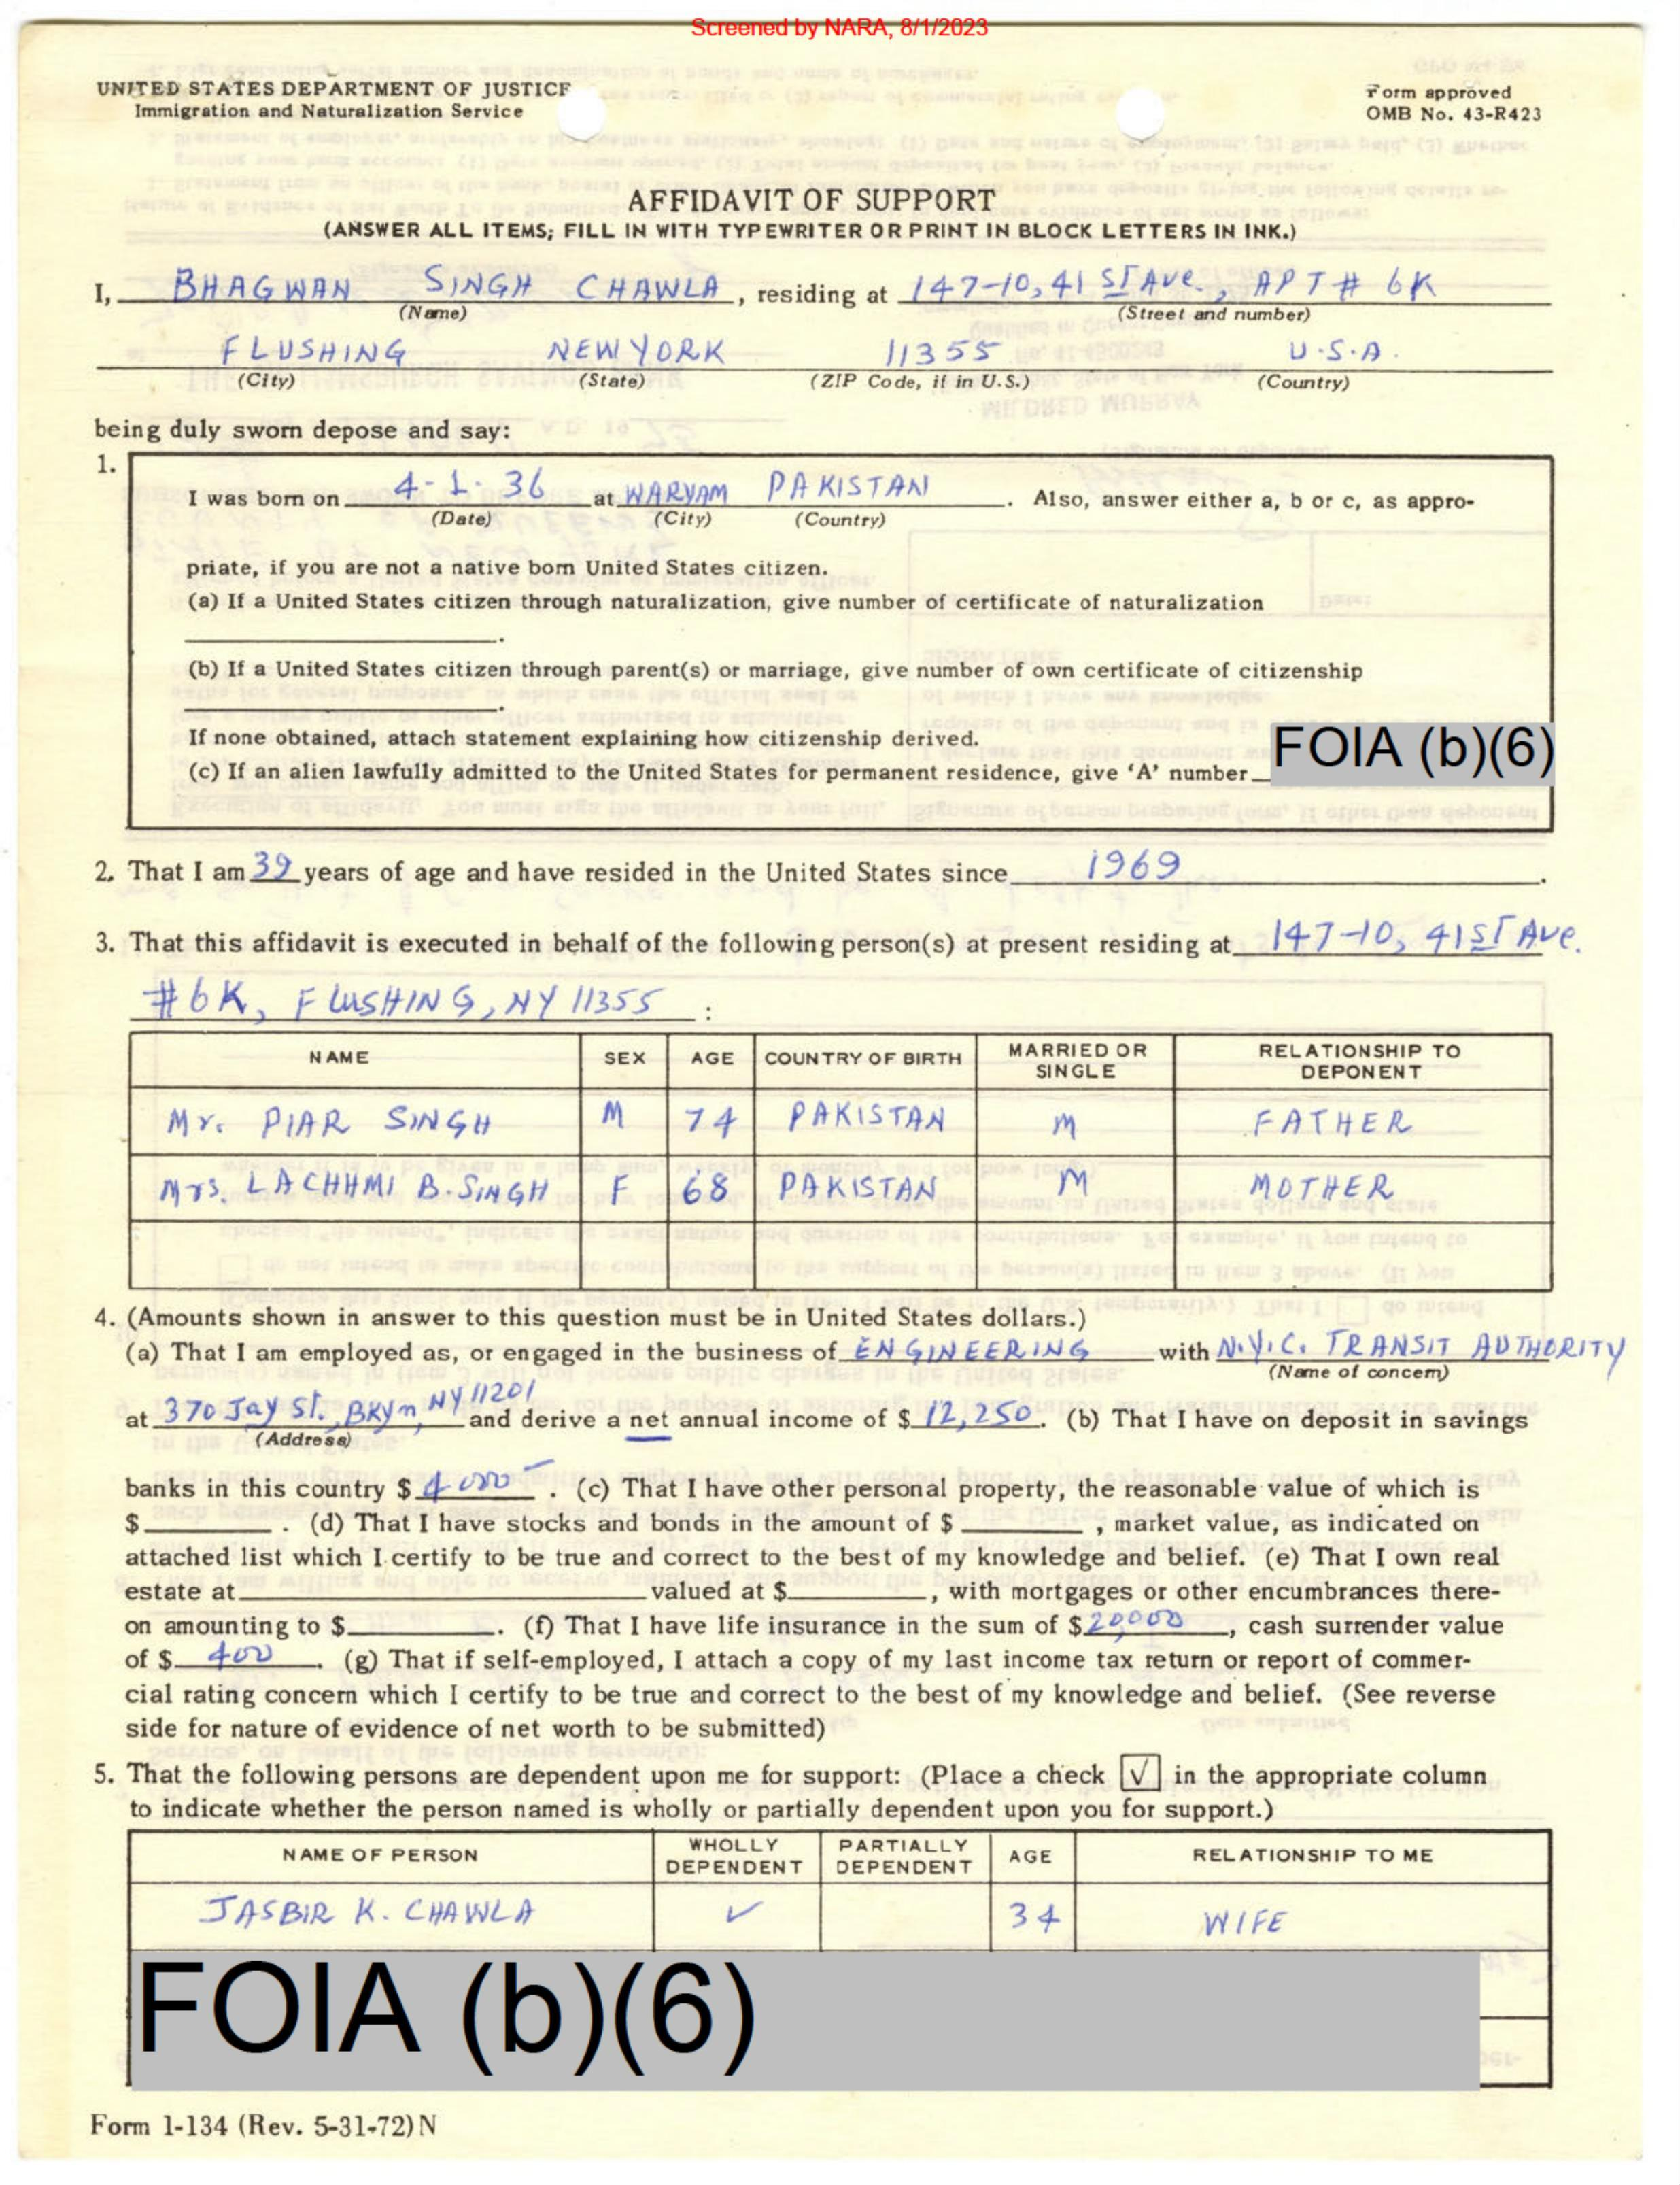 Screened by NARA, 8/1/2023
UNITED STATES DEPARTMENT OF JUSTICE
Immigration and Naturalization Service
Form approved
OMB No. 43-R423
AFFIDAVIT OF SUPPORT
(ANSWER ALL ITEMS; FILL IN WITH TYPEWRITER OR PRINT IN BLOCK LETTERS IN INK.)
I, BHAGWAN SINGH CHAWLA, residing at 147-10, 41 ST AVE., APT # 6K
(Name) (Street and number)
FLUSHING NEW YORK 11355 U.S.A.
(City) (State) (ZIP Code, if in U.S.) (Country)
being duly sworn depose and say:
1.
I was born on 4-1-36 at WARYAM PAKISTAN. Also, answer either a, b or c, as appro-
(Date) (City) (Country)
priate, if you are not a native born United States citizen.
(a) If a United States citizen through naturalization, give number of certificate of naturalization
.
(b) If a United States citizen through parent(s) or marriage, give number of own certificate of citizenship
.
If none obtained, attach statement explaining how citizenship derived.
(c) If an alien lawfully admitted to the United States for permanent residence, give 'A' number FOIA (b)(6)
2. That I am 39 years of age and have resided in the United States since 1969.
3. That this affidavit is executed in behalf of the following person(s) at present residing at 147-10, 41ST AVE.
#6K, FLUSHING, NY 11355 :
NAME SEX AGE COUNTRY OF BIRTH MARRIED OR SINGLE RELATIONSHIP TO DEPONENT
Mr. PIAR SINGH M 74 PAKISTAN M FATHER
Mrs. LACHHMI B. SINGH F 68 PAKISTAN M MOTHER
4. (Amounts shown in answer to this question must be in United States dollars.)
(a) That I am employed as, or engaged in the business of ENGINEERING with N.Y.C. TRANSIT AUTHORITY
(Name of concern)
at 370 Jay St., BKyn, NY 11201 and derive a net annual income of $ 12,250. (b) That I have on deposit in savings
(Address)
banks in this country $ 4000-. (c) That I have other personal property, the reasonable value of which is
$ . (d) That I have stocks and bonds in the amount of $ , market value, as indicated on
attached list which I certify to be true and correct to the best of my knowledge and belief. (e) That I own real
estate at valued at $ , with mortgages or other encumbrances there-
on amounting to $ . (f) That I have life insurance in the sum of $ 20,000, cash surrender value
of $ 400. (g) That if self-employed, I attach a copy of my last income tax return or report of commer-
cial rating concern which I certify to be true and correct to the best of my knowledge and belief. (See reverse
side for nature of evidence of net worth to be submitted)
5. That the following persons are dependent upon me for support: (Place a check √ in the appropriate column
to indicate whether the person named is wholly or partially dependent upon you for support.)
NAME OF PERSON WHOLLY DEPENDENT PARTIALLY DEPENDENT AGE RELATIONSHIP TO ME
JASBIR K. CHAWLA ✓ 34 WIFE
FOIA (b)(6)
Form I-134 (Rev. 5-31-72) N